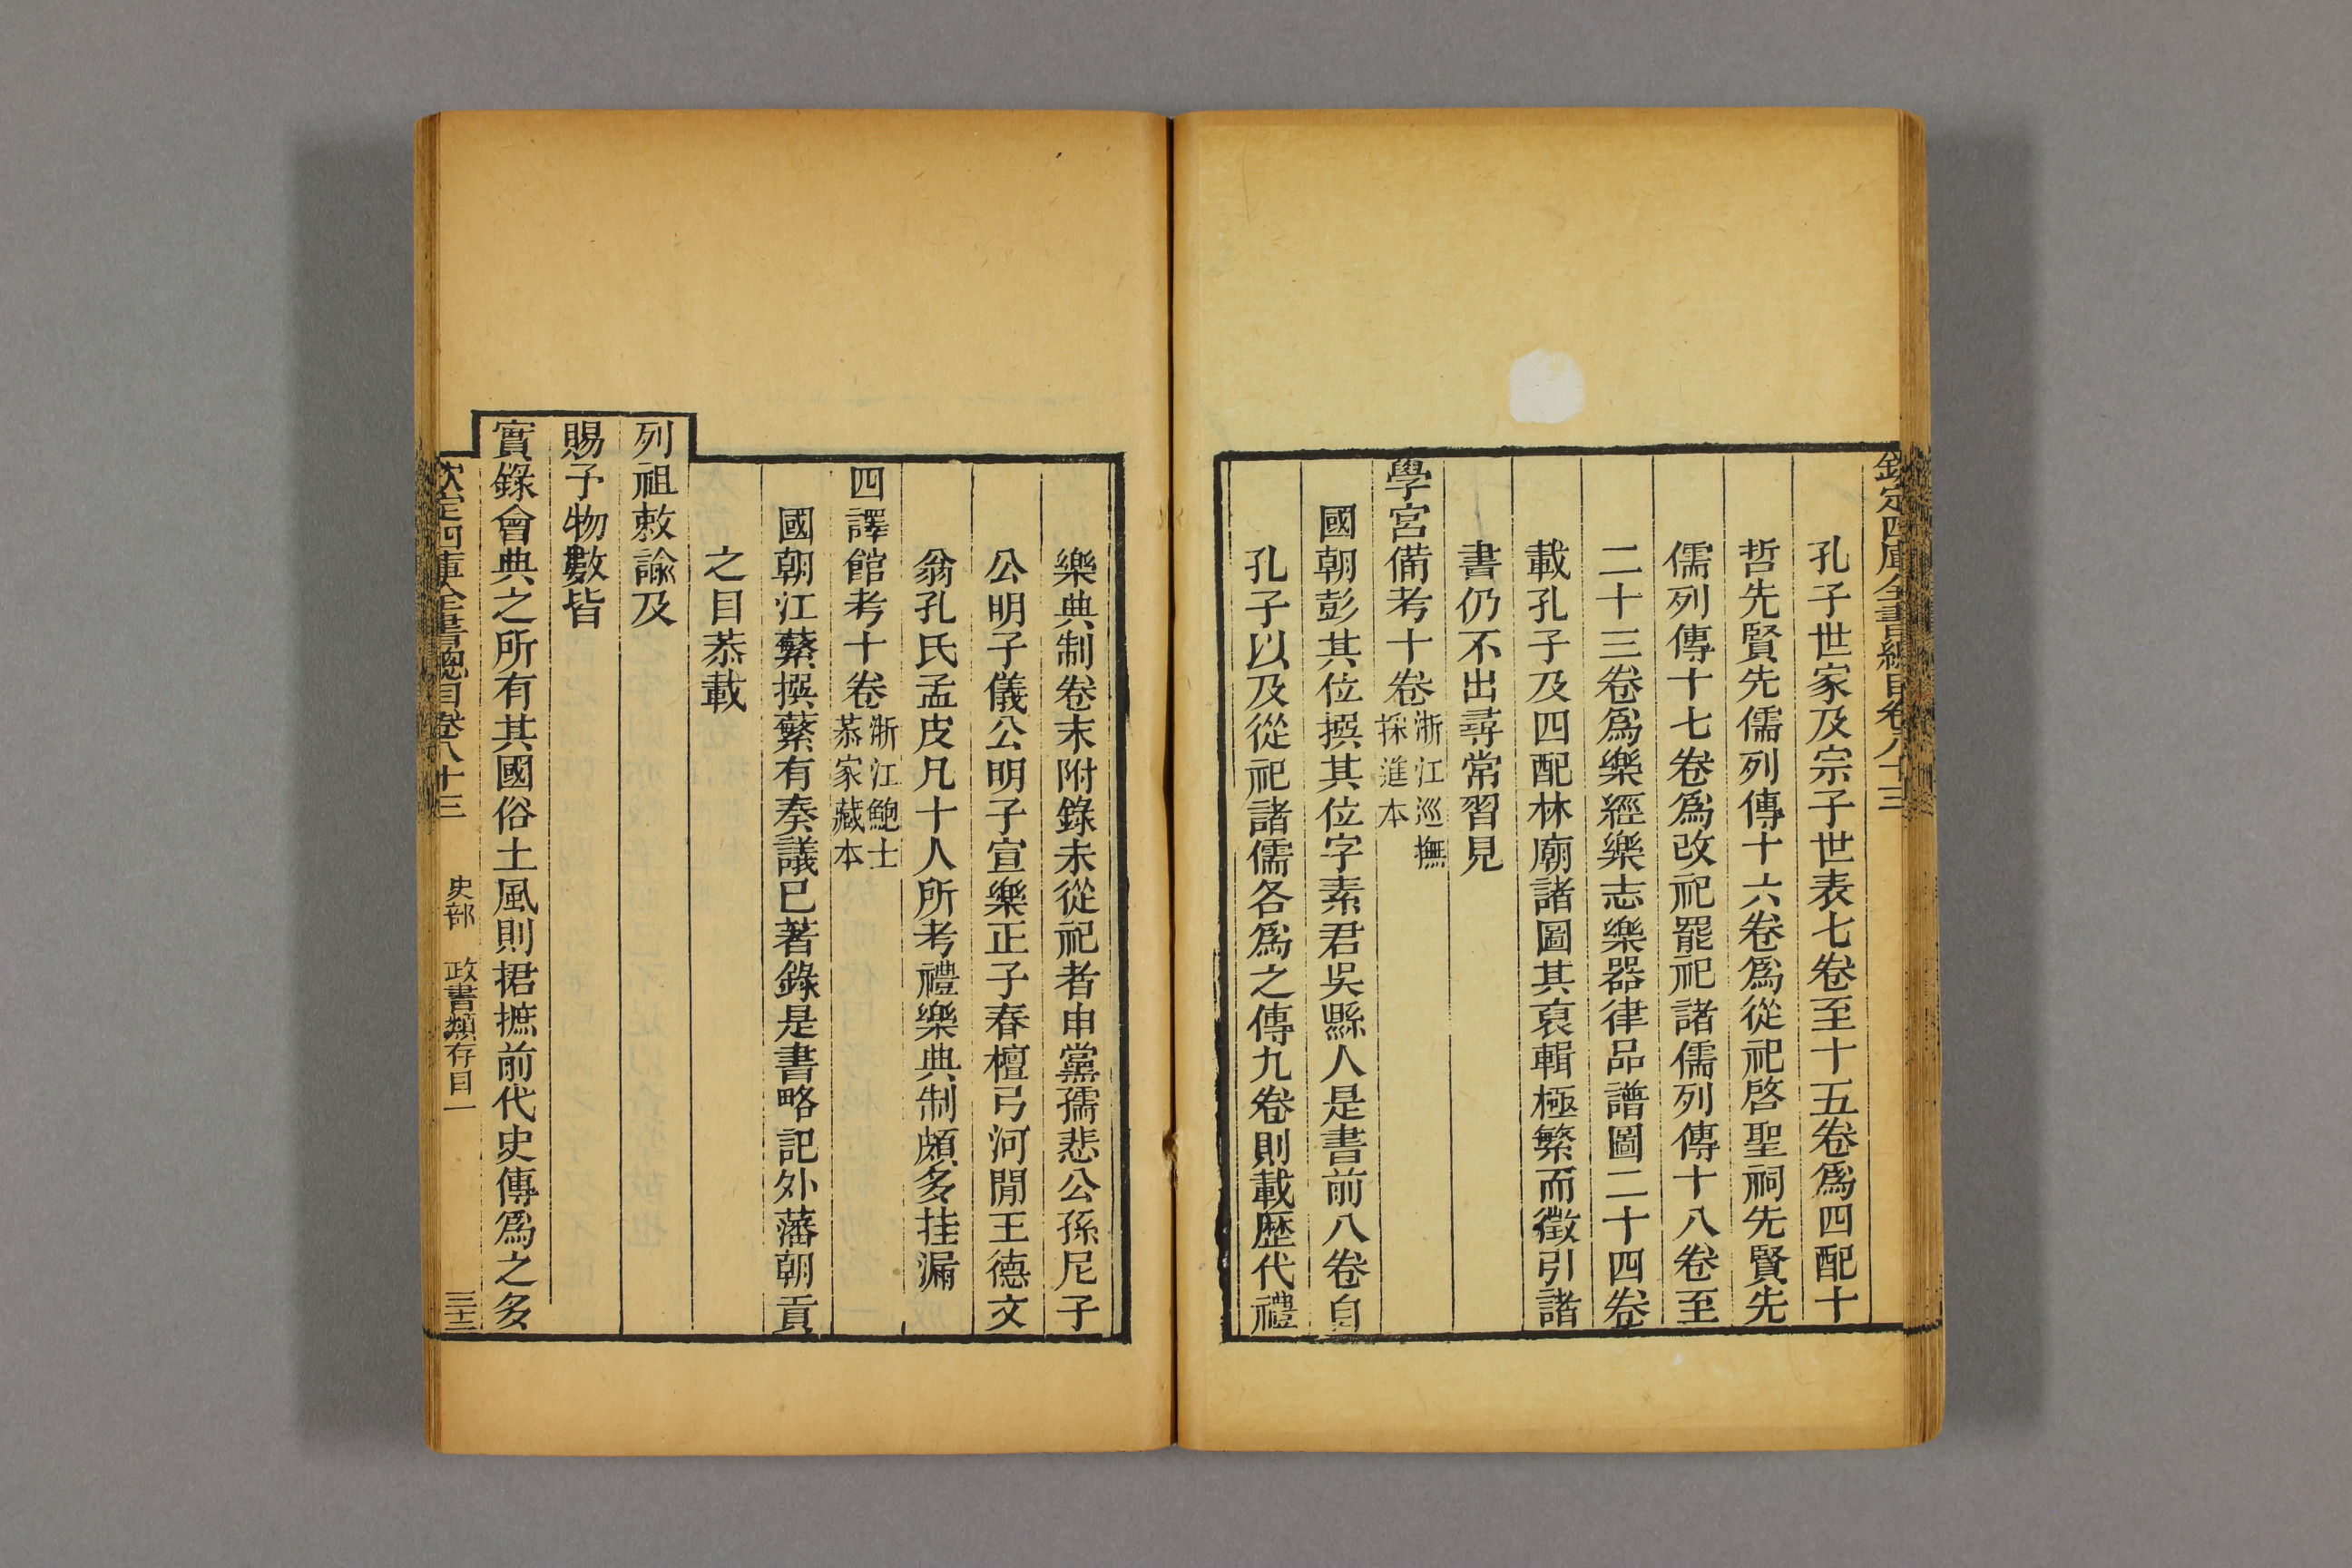 欽定四庫全書總目卷八十三
孔子世家及宗子世表七卷至十五卷爲四配十
哲先賢先儒列傳十六卷爲從祀啓聖祠先賢先
儒列傳十七卷爲改祀罷祀諸儒列傳十八卷至
二十三卷爲樂經樂志樂器律品譜圖二十四卷
載孔子及四配林廟諸圖其裒輯極繁而徵引諸
書仍不出尋常習見
學宮備考十卷浙江巡撫採進本
國朝彭其位撰其位字素君吳縣人是書前八卷自
孔子以及從祀諸儒各爲之傳九卷則載歷代禮
樂典制卷末附錄未從祀者申黨孺悲公孫尼子
公明子儀公明子宣樂正子春檀弓河閒王德文
翁孔氏孟皮凡十人所考禮樂典制頗多挂漏
四譯館考十卷浙江鮑士恭家藏本
國朝江蘩撰蘩有奏議已著錄是書略記外藩朝貢
之目恭載
列祖敕諭及
賜予物數皆
實錄會典之所有其國俗土風則捃摭前代史傳爲之多
欽定四庫全書總目卷八十三 史部 政書類存目一 三十三